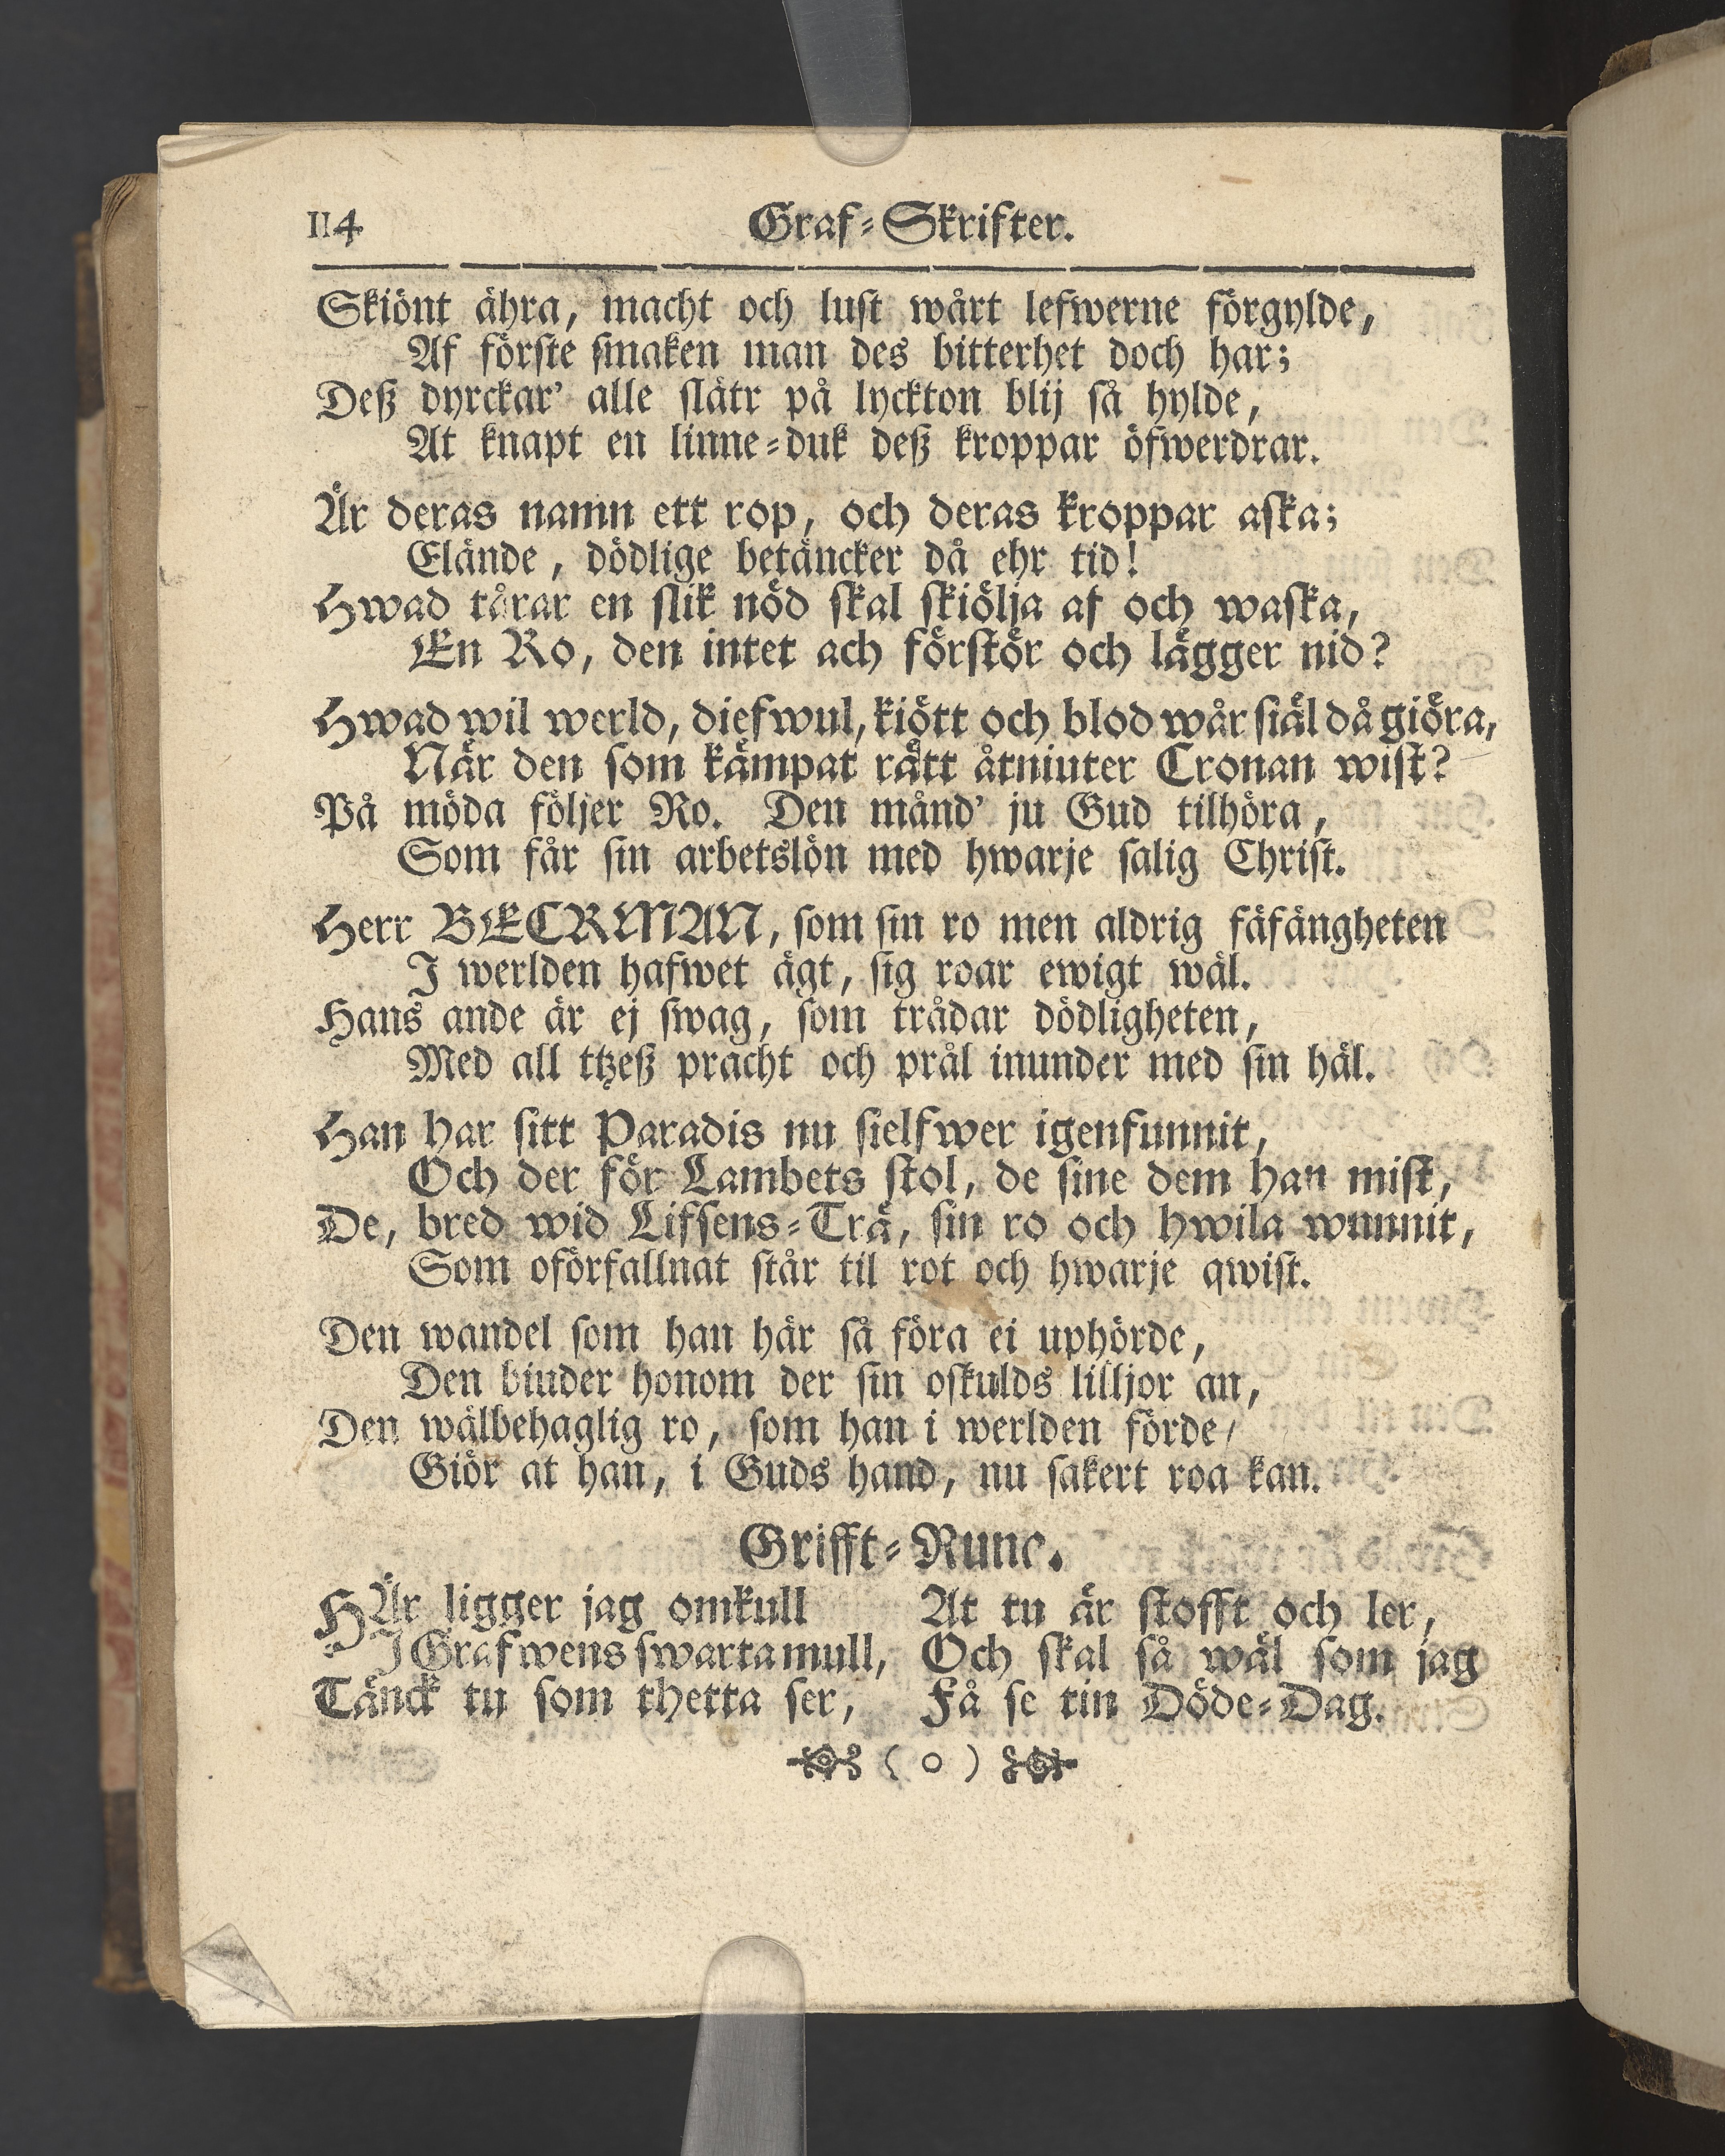 114 Graf-Skrifter.
Skiönt ähra, macht och lust wårt lefwerne förgylde,
Af förste smaken man des bitterhet doch har;
Deß dyrckar' alle slätr på lyckton blij så hylde,
At knapt en linne-duk deß kroppar öfwerdrar.
Är deras namn ett rop, och deras kroppar aska;
Elände, dödlige betäncker då ehr tid!
Hwad tårar en slik nöd skal skiölja af och waska,
En Ro, den intet ach förstör och lägger nid?
Hwad wil werld, diefwul, kiött och blod wår siäl då giöra,
När den som kämpat rätt åtniuter Cronan wist?
På möda följer Ro. Den månd' ju Gud tilhöra,
Som får sin arbetslön med hwarje salig Christ.
Herr BECRMAN, som sin ro men aldrig fäfängheten
I werlden hafwet ägt, sig roar ewigt wäl.
Hans ande är ej swag, som trådar dödligheten,
Med all ttzeß pracht och prål inunder med sin häl.
Han har sitt Paradis nu sielfwer igenfunnit,
Och der för Lambets stol, de sine dem han mist,
De, bred wid Lifsens-Trä, sin ro och hwila wunnit,
Som oförfallnat står til rot och hwarje qwist.
Den wandel som han här så föra ei uphörde,
Den binder honom der sin oskulds lilljor an,
Den wälbehaglig ro, som han i werlden förde/
Giör at han, i Guds hand, nu sakert roa kan.
Grifft-Rune.
HÄr ligger jag omkull
I Grafwens swarta mull,
Tänck tu som thetta ser,
At tu är stofft och ler,
Och skal så wäl som jag
Få se tin Döde-Dag.
( o )